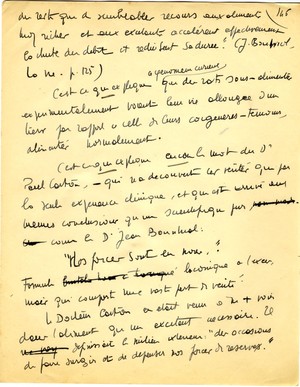 du reste que de semblables recours aux aliments 166
trop riches et aux excitants accélèrent effectivement
la chute du débit et réduisent sa durée" (J. Bonfort
La vie. p. 125)
C'est ce qui explique que des rats sous-alimentés
expérimentalement voient leur vie allongée d'un
tiers par rapport à celle de leurs congénères-témoins,
alimentés normalement.
C'est ce qui explique encore le mot du Dr
Paul Carton, - qui n'a découvert cette vérité que par
la seule expérience clinique, et qui est arrivé aux
mêmes conclusions qu'un scientifique pur
comme le Dr Jean
"Nos forces sont en nous."
Formule laconique à l'excès,
mais qui comporte une vaste part de vérité!
Le Docteur Carton en était venu à ne + voir
dans l'aliment que un excitant nécessaire. Il
définissait le milieu extérieur: "des occasions
de faire surgir et de dépenser nos forces de réserves."